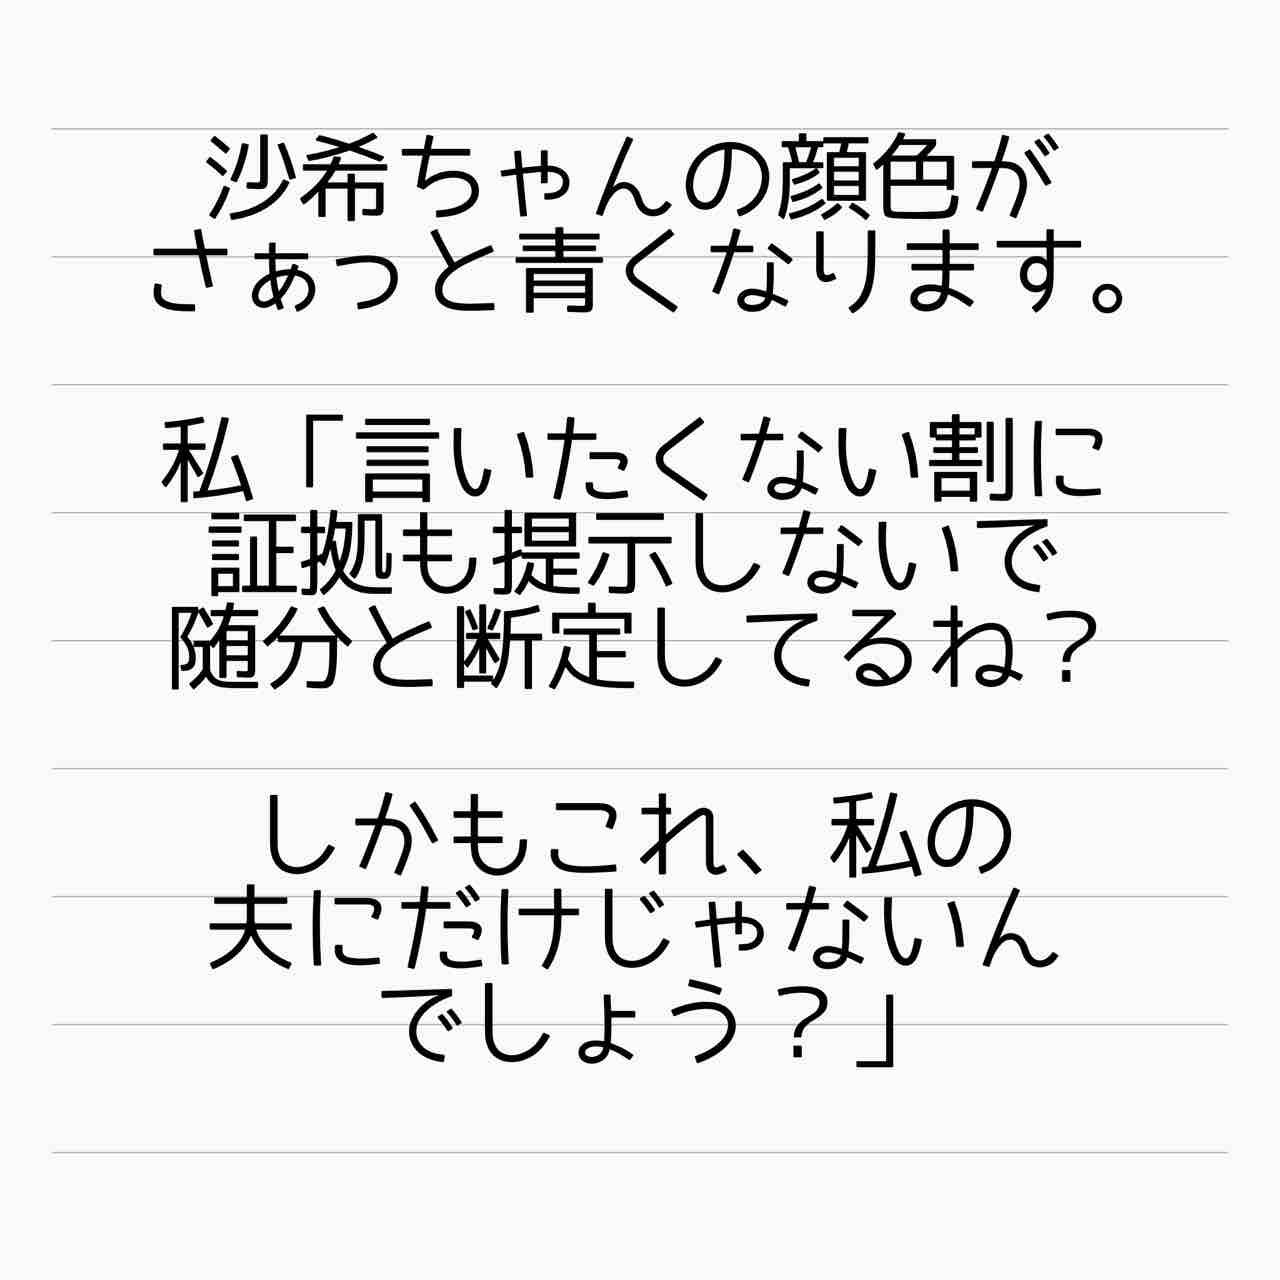 沙希ちゃんの顔色が
さぁっと青くなります。
私「言いたくない割に
証拠も提示しないで
随分と断定してるね？
しかもこれ、私の
夫にだけじゃないん
でしょう？」